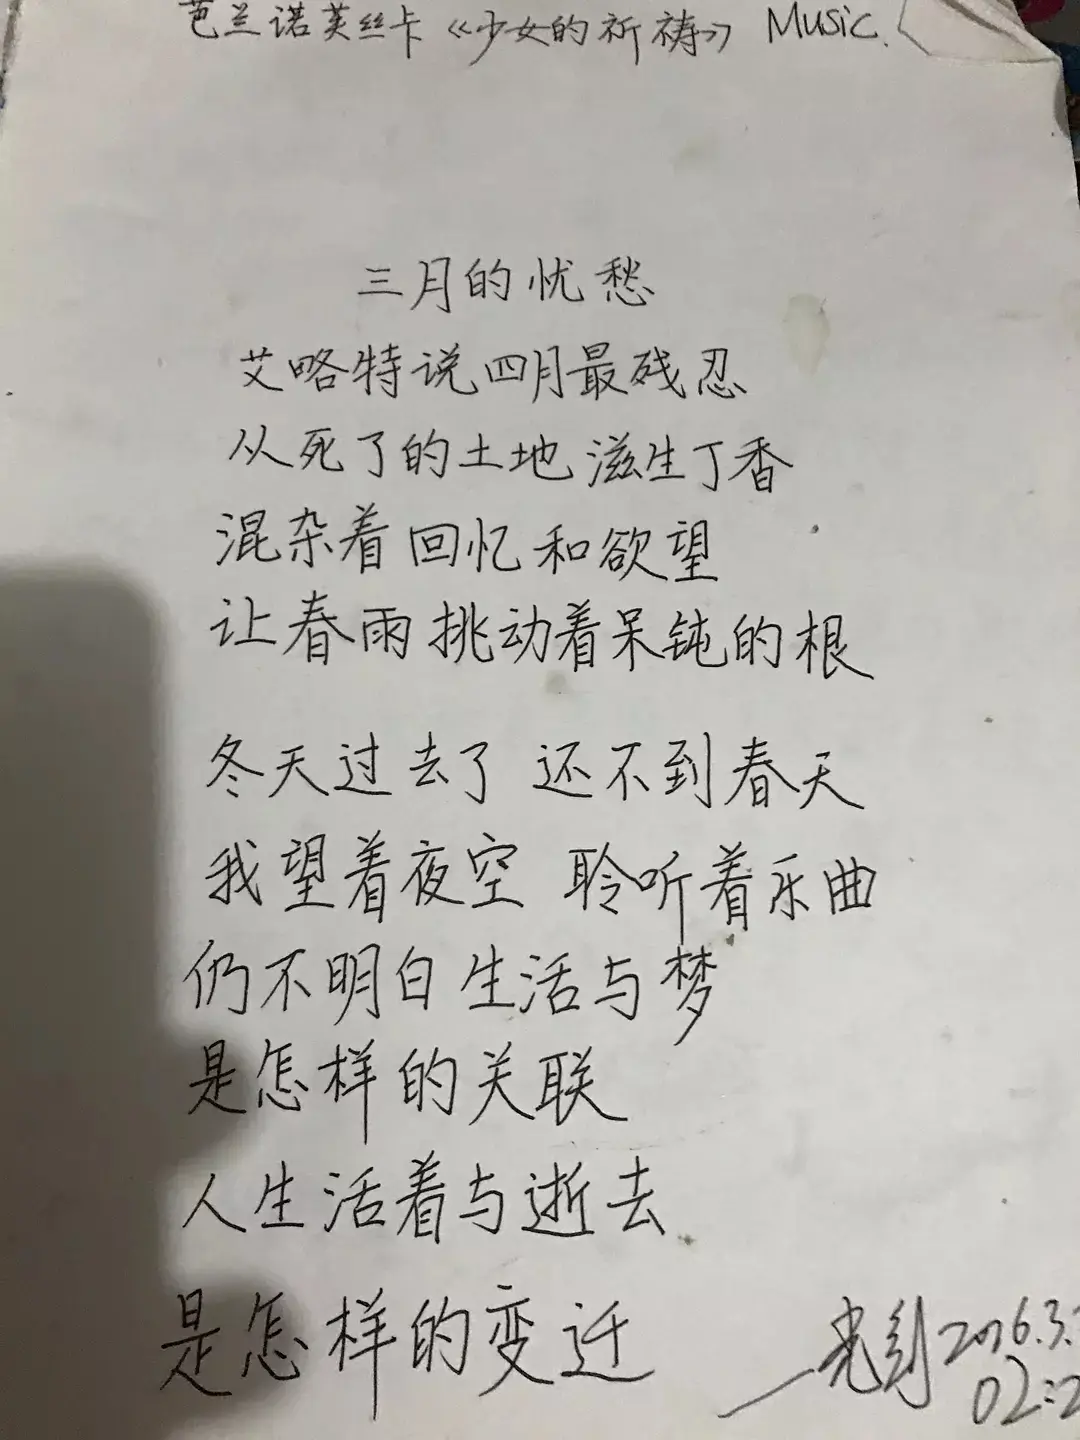 芭兰诺芙丝卡《少女的祈祷》 Music.
三月的忧愁
艾略特说四月最残忍
从死了的土地 滋生丁香
混杂着回忆和欲望
让春雨挑动着呆钝的根
冬天过去了 还不到春天
我望着夜空 聆听着乐曲
仍不明白生活与梦
是怎样的关联
人生活着与逝去
是怎样的变迁